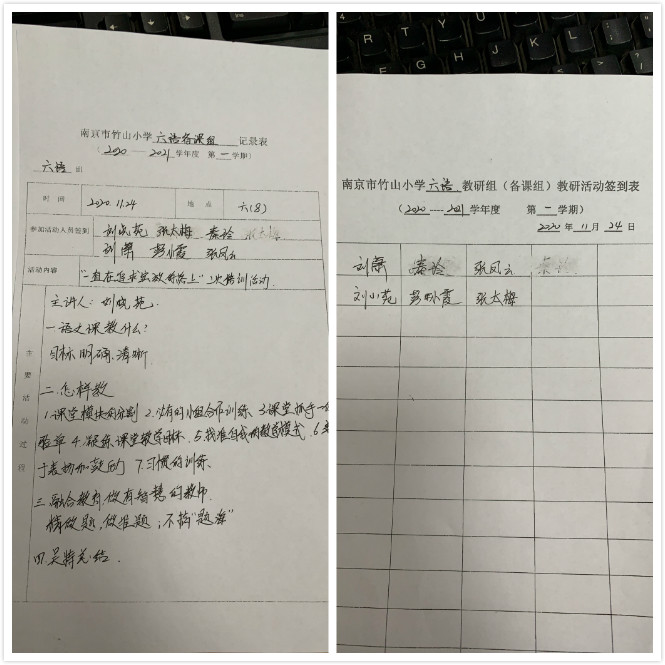 南京市竹山小学六语备课组 记录表
(2020——2021学年度 第一学期)
六语 组
时间 2020.11.24 地点 六(8)
参加活动人员签到 刘晓苑 张太梅 秦玲
刘萧 彭小霞 张凤云
活动内容 "走在追求 路上"一次培训活动
主要活动过程
主讲人:刘晓苑.
一 语文课教什么?
目标明确.清晰
二.怎样教
1.课堂模块的分割 2.小组合作训练、3.课堂抓手一
验单 4. 课堂教学目标. 5.找准自我的教学模式. 6.
于表扬和鼓励 7.习惯的训练.
三.融合教育,做有智慧的教师.
精做题,做准题;不搞"题海"
四.吴 总结.
R T Y U
F G H J K L
南京市竹山小学六语教研组(备课组)教研活动签到表
(2020——2021学年度 第一学期)
2020年11月24日
刘萧 秦玲 张凤云
刘小苑 彭小霞 张太梅